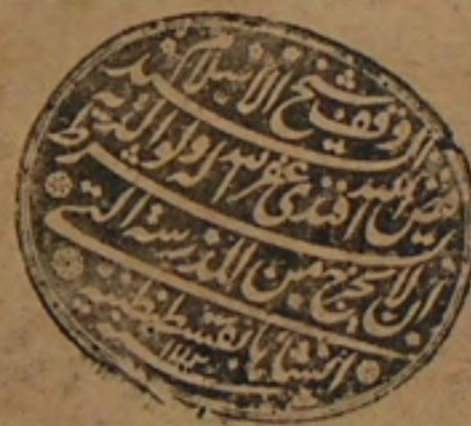 وقف شيخ الاسلام السيد
فيض الله افندى غفر الله له ولوالديه
بشرط ان لا يخرج من المدرسة التى
انشأها بقسطنطينيه
١١١٢